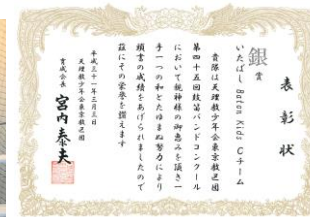 表彰状
銀賞
いたばし Baton Kids Cチーム
貴隊は天理教少年会東京教区団
第四十五回鼓笛バンドコンクール
において親神様の御恵みを頂き一
手一つの和とたゆまぬ努力により
頭書の成績をあげられましたので
茲にその栄誉を讃えます
平成三十一年三月三日
天理教少年会東京教区団
育成会長 宮内泰夫